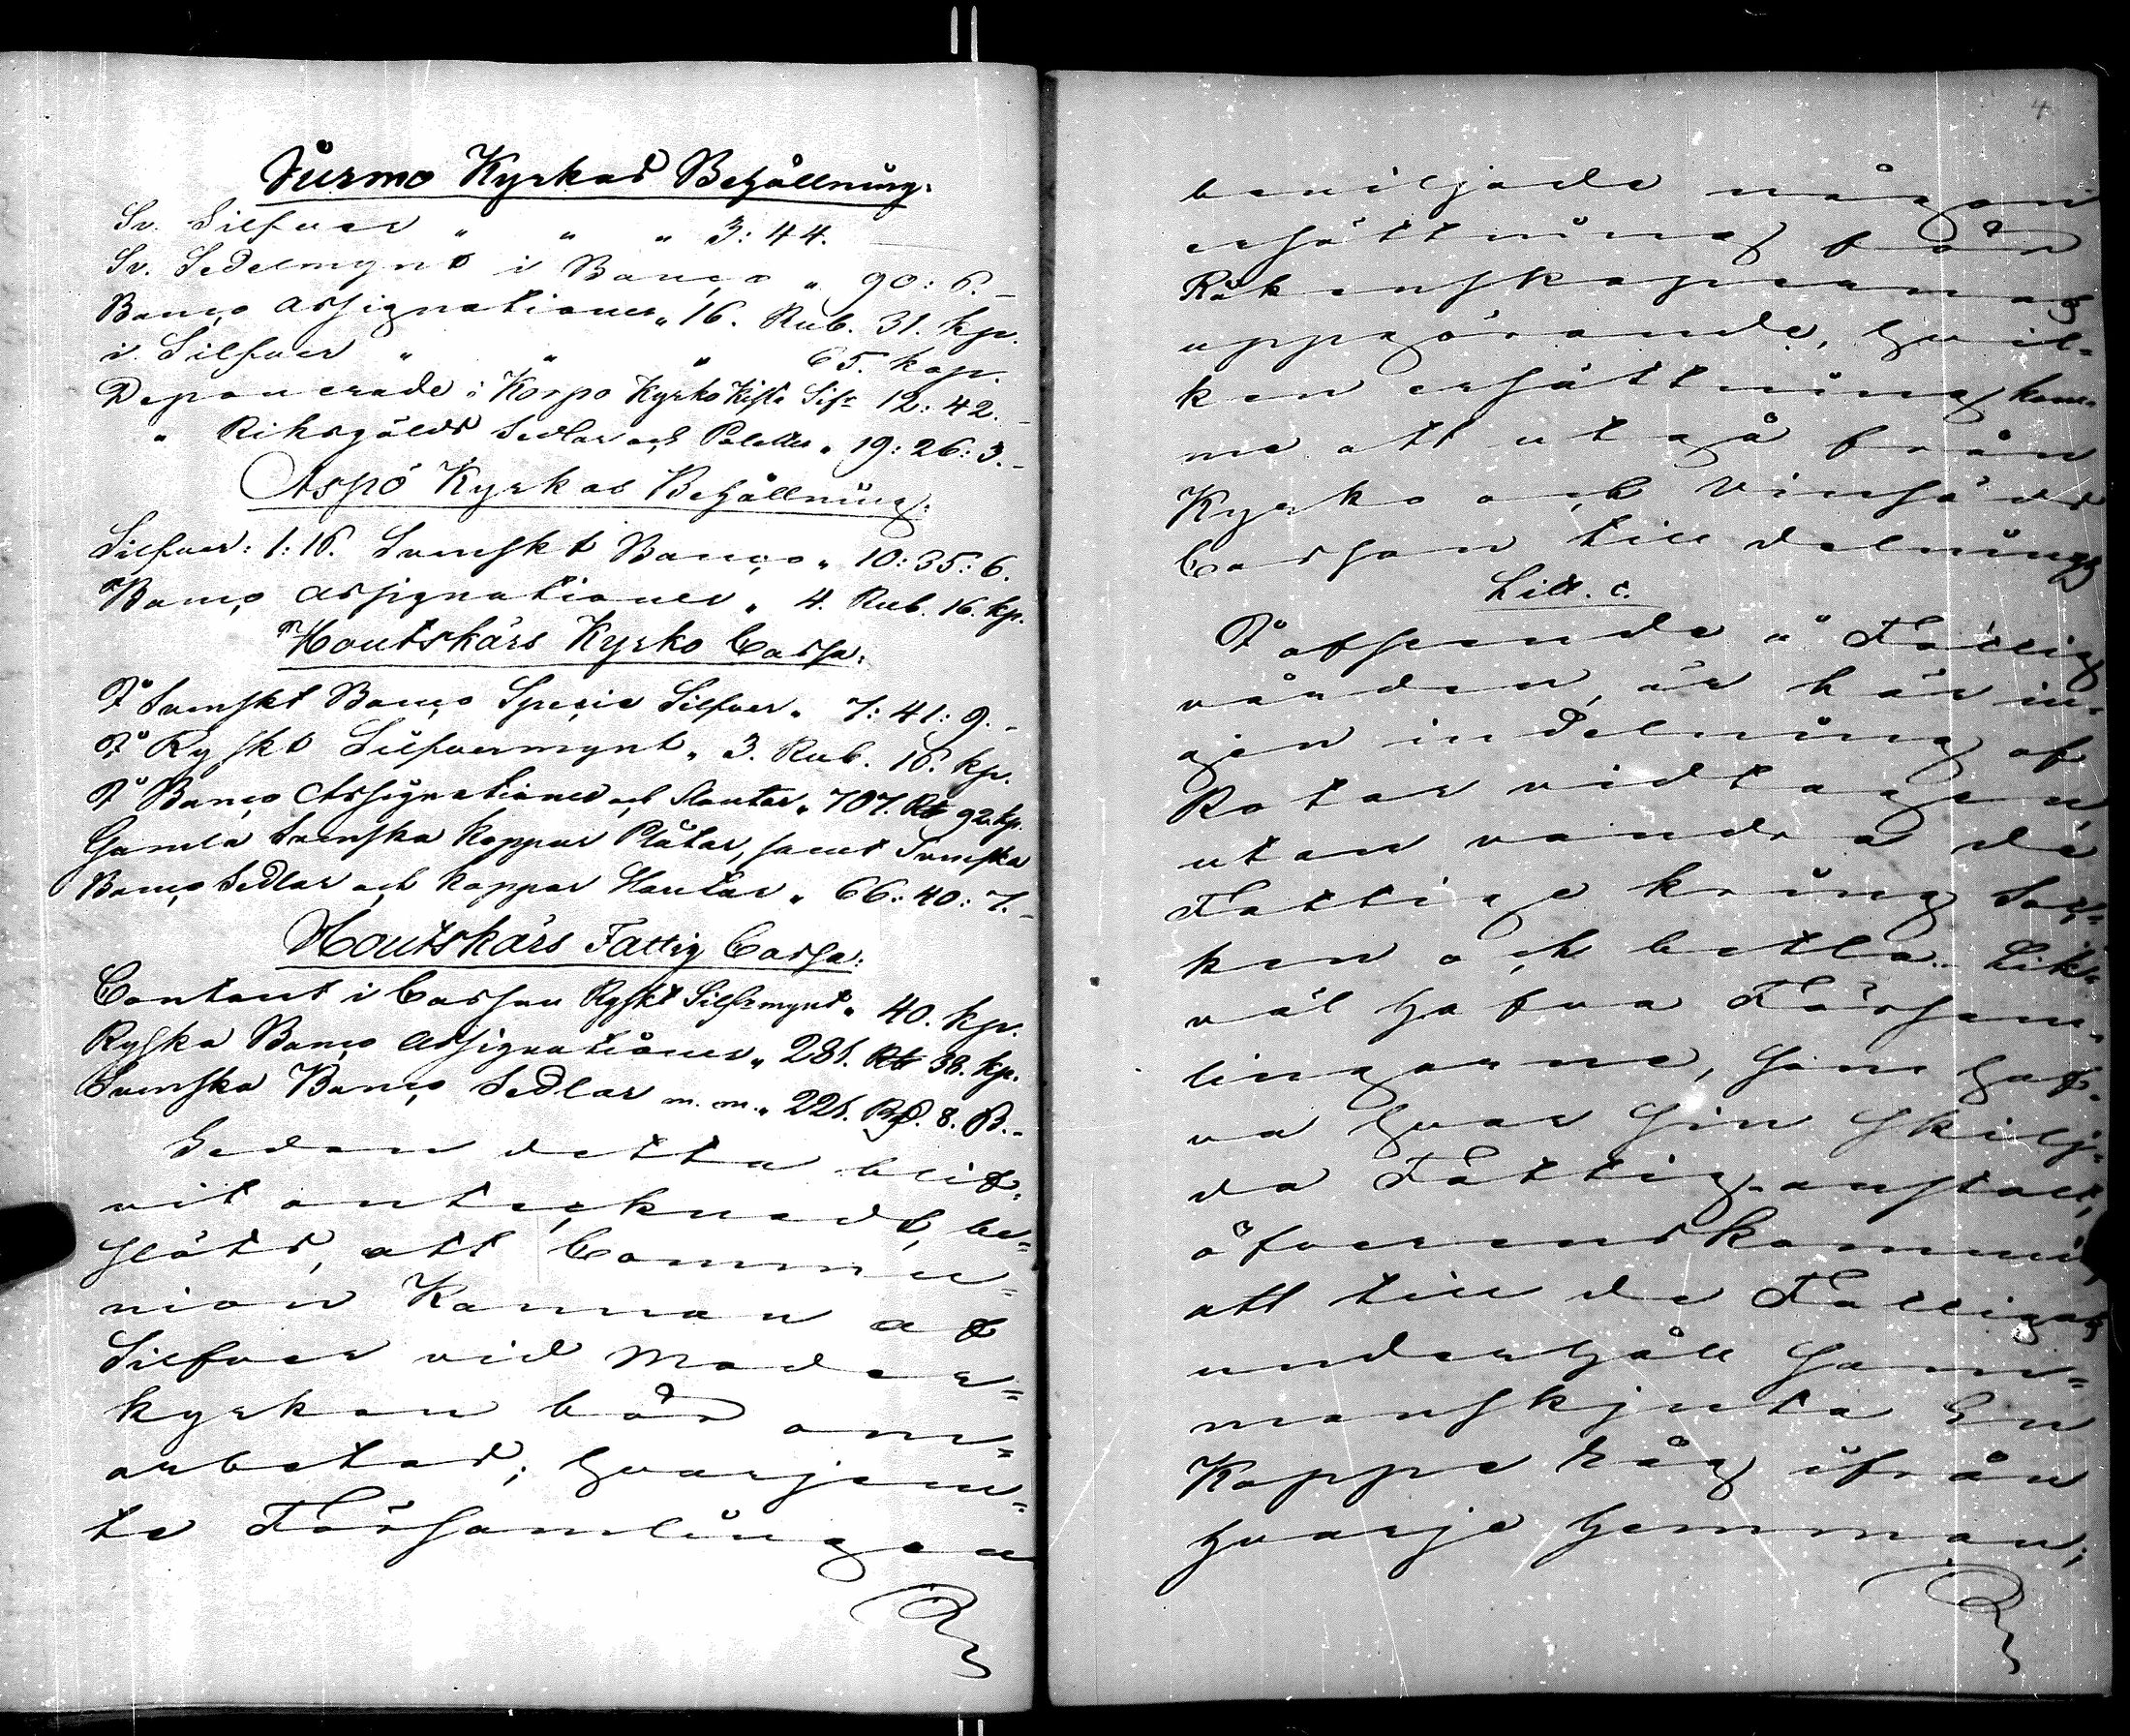 Jurmo Kyrkas Behållning:
Sv. Silfver " " " 3: 44.
Sv. Sedelmynt i Banco " 90: 6.-
Banco Assignationer " 16. Rub. 31. kp.
i Silfver " " " 65. kop.
Deponerade i Korpo Kyrko Kista Silfr 12: 42.-
" Riksgälds Sedlar och Poletter " 19: 26: 3.-
Aspö Kyrkas Behållning:
Silfver: 1: 16. Svenskt Banco " 10: 35: 6.
Banco Assignationer " 4. Rub. 16. kp.
Houtskärs Kyrko Cassa:
I Svenskt Banco Specie Silfver " 7: 41: 9.-
I Ryskt Silfvermynt " 3. Rub. 16. kp.
I Banco Assignationer och Slantar " 707. Rb 92. kp.
Gamla Svenska koppar Plåtar, samt Svenska
Banco Sedlar och koppar Slantar " 66: 40: 7.-
Houtskärs Fattig Cassa:
Contant i Cassan Ryskt Silfrmynt " 40. kp.
Ryska Banco Assignationer " 281. Rb 38. kp.
Svenska Banco Sedlar m. m. " 221. Rd. 8. ß.-
Sedan detta blif-
vit antecknadt, be=
slöts, att Commu=
nion Kannan af
Silfver vid Moder=
kyrkan bör om=
arbetas; hvarjem=
te Församlingen
4
beviljade någon
ersättning för
Räkenskapernas
uppgörande, hvil-
ken ersättning kom-
me att utgå från
Kyrko och Vinsäds
Cassan till delnings
Litt. c.
I afseende å Fattig
vården, är här in-
gen indelning af
Rotar vidtagen,
utan vandra de
Fattige kring Soc-
ken och betla. Lik-
väl hafva Försam-
lingarne, som haf-
va hvar sin skilj-
da Fattig-anstalt,
öfverenskommit,
att till de Fattigas
underhåll sam-
manskjuta En
Kappe Råg ifrån
hvarje hemman;